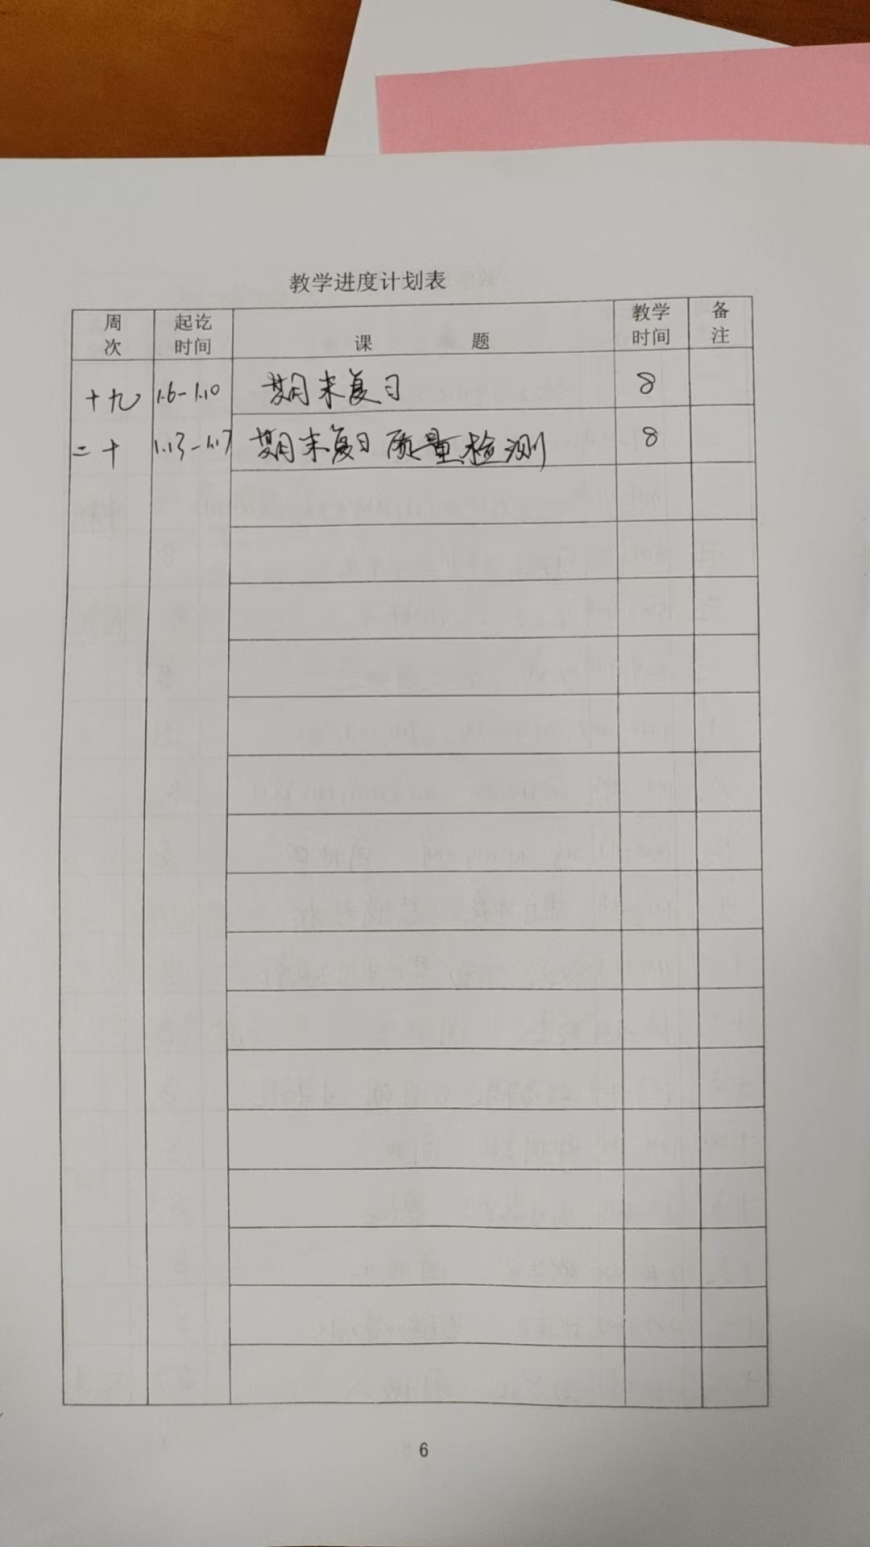 教学进度计划表
周次 起讫时间 课 题 教学时间 备注
十九 1.6-1.10 期末复习 8
二十 1.13-1.17 期末复习 质量检测 8
6